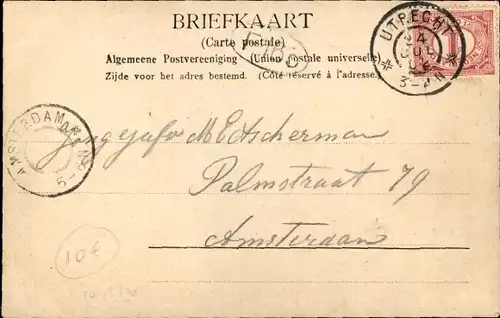 BRIEFKAART
(Carte postale)
Algemeene Postvereeniging (Union postale universelle)
Zijde voor het adres bestemd. (Côté réservé à l'adresse.)
UTRECHT
3-4N
AMSTERDAM
Jongejufr M Etscherman
Palmstraat 79
Amsterdam
10€